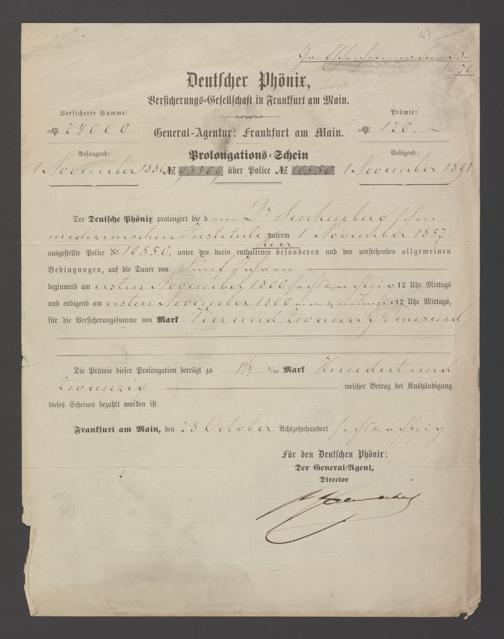 47
76
Deutscher Phönix,
Versicherungs-Gesellschaft in Frankfurt am Main.
Versicherte Summe:
Prämie:
24000
General-Agentur: Frankfurt am Main.
120.—
Anfangend:
Prolongations-Schein
Endigend:
1 November 1886 № 93109 über Police № 10550 1 November 1891
Der Deutsche Phönix prolongirt die dem Dr Senckenbergschen
medizinischen Institute unterm 1 November 1857
ausgestellte Police № 10550, unter den darin enthaltenen besonderen und den umstehenden allgemeinen
Bedingungen, auf die Dauer von fünf Jahren
beginnend am ersten November 1800 sechszachtzig 12 Uhr Mittags
und endigend am ersten November 1800 12 Uhr Mittags,
für die Versicherungssumme von Mark Vier und Zwanzig Tausend
Die Prämie dieser Prolongation beträgt zu ‰ Mark Hundert und
Zwanzig welcher Betrag bei Aushändigung
dieses Scheines bezahlt worden ist.
Frankfurt am Main, den 28 October Achtzehnhundert
Für den Deutschen Phönix:
Der General-Agent,
Director